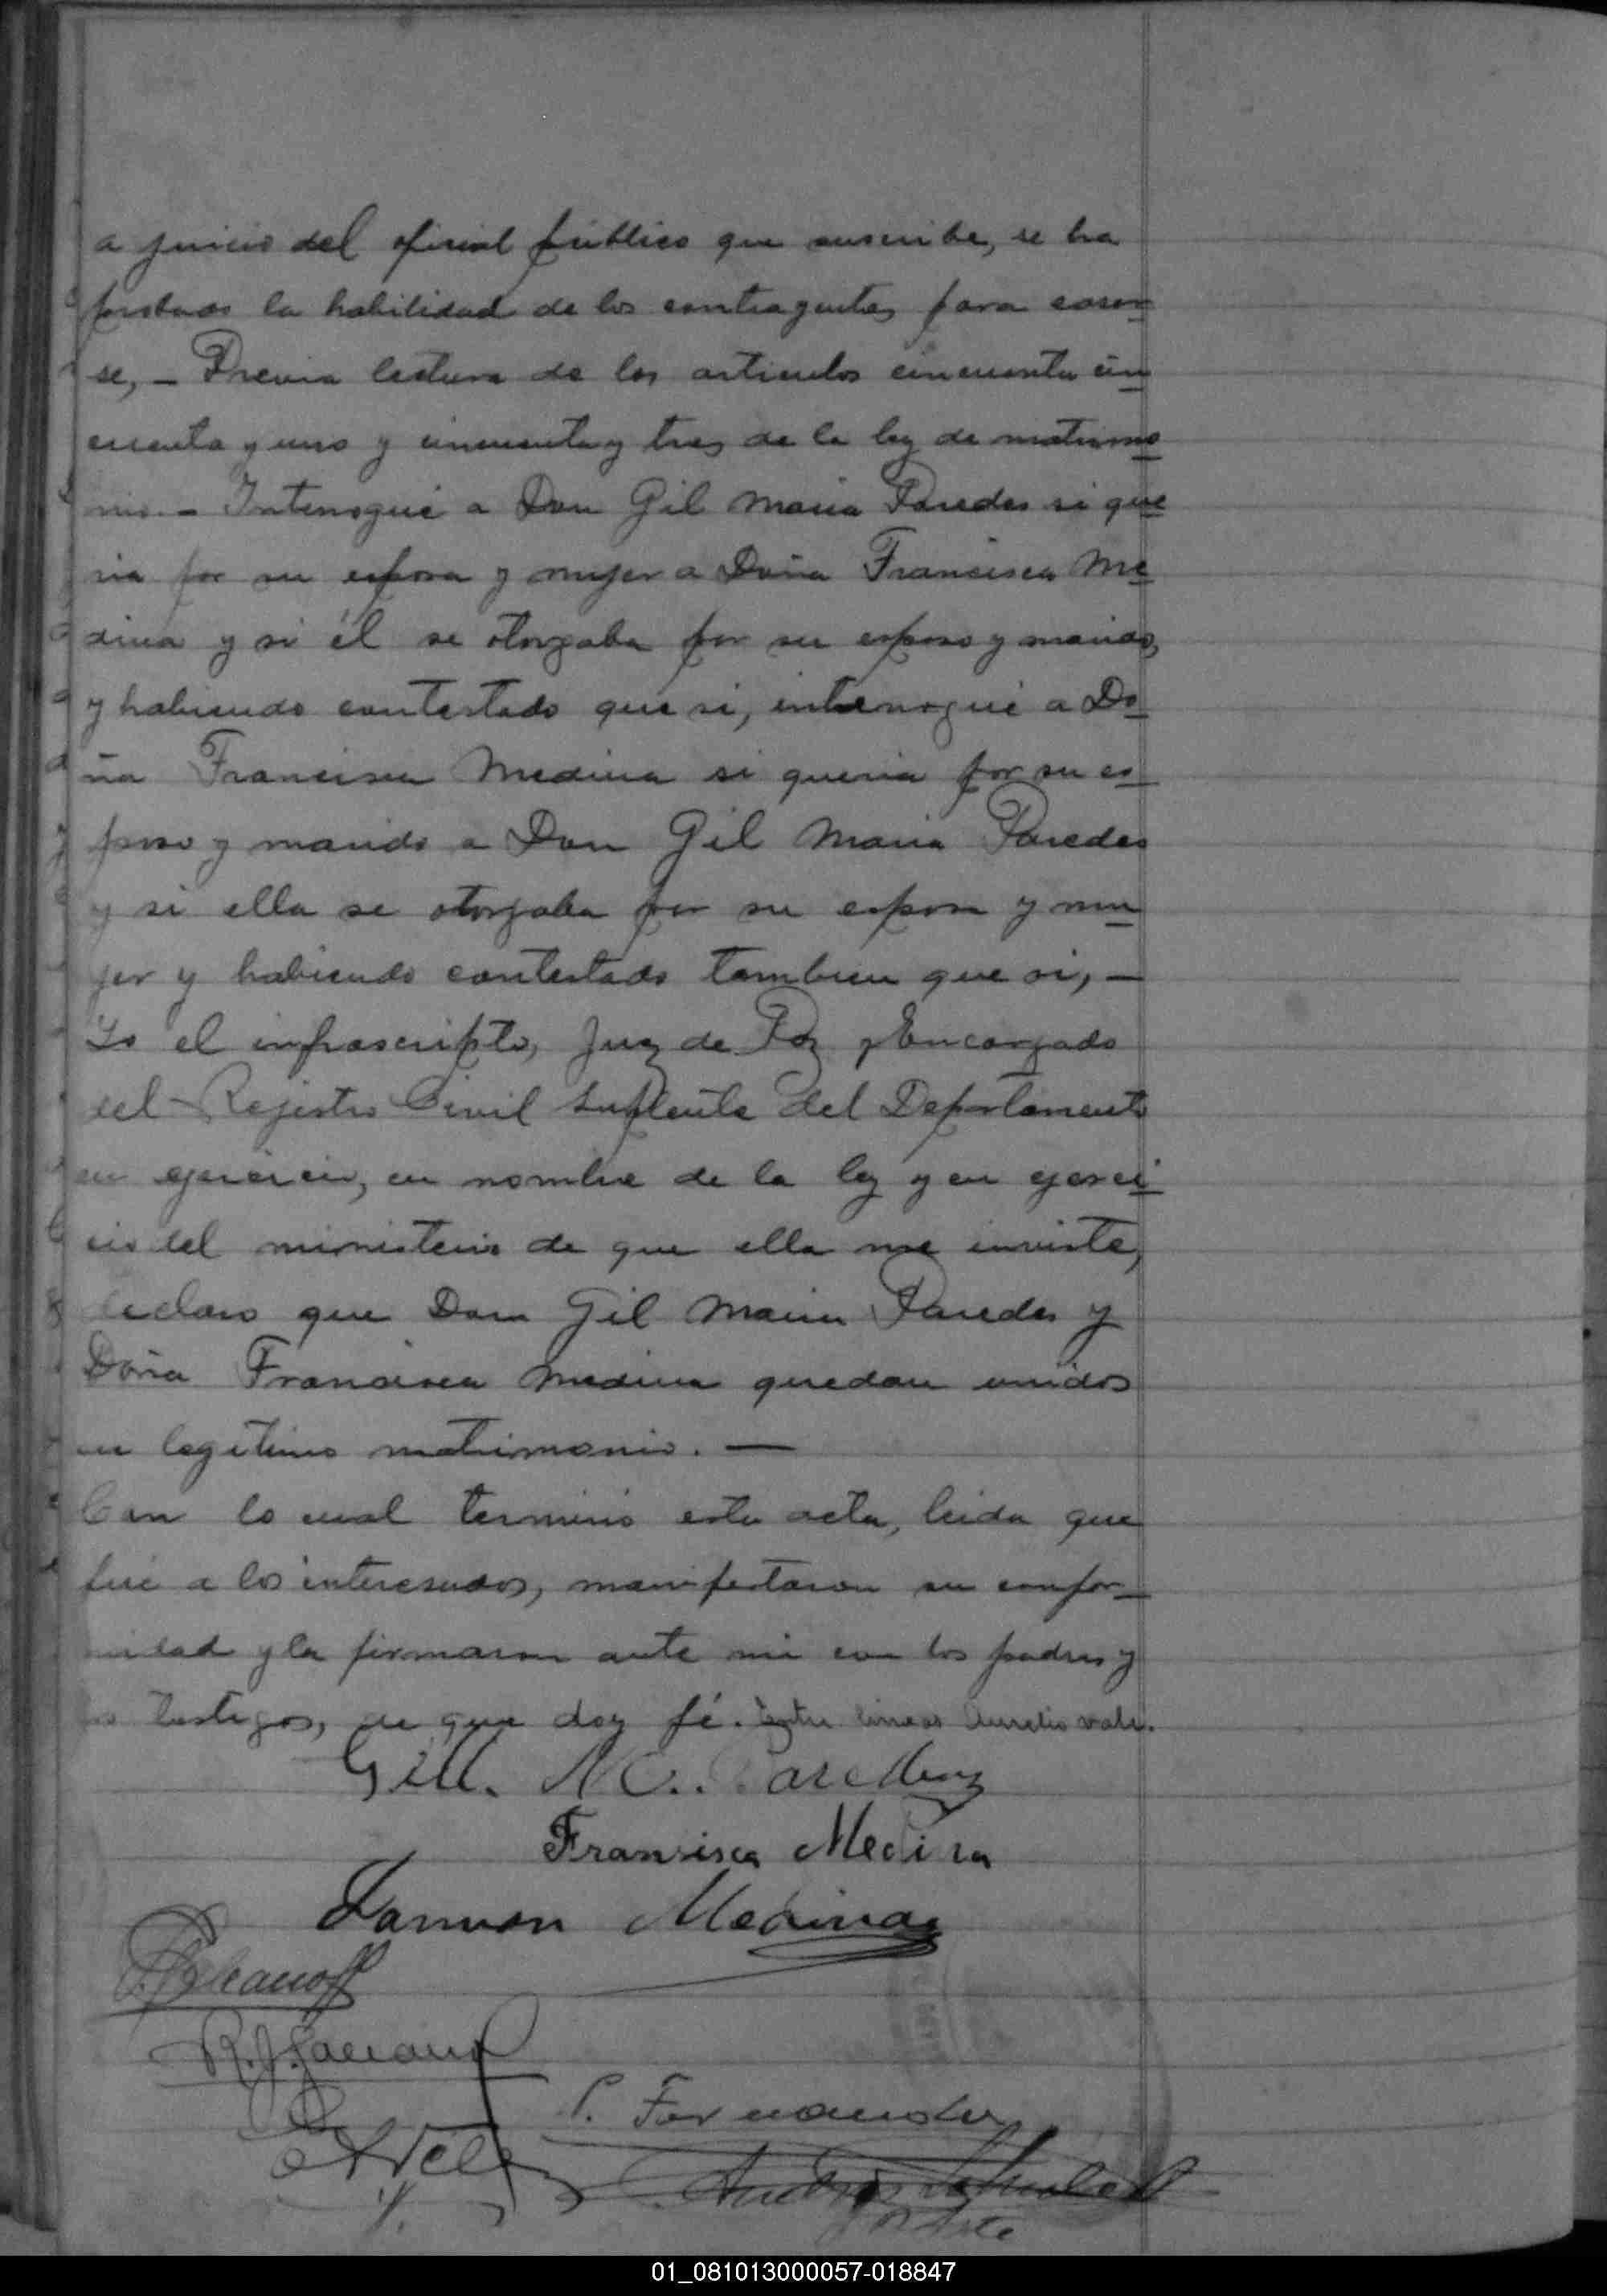 a juicio del oficial público que suscribe, se ha
probado la habilidad de los contrayentes para casar
se, - Previa lectura de los articulos cincuenta cin
cuenta y uno y cincuenta y tres de la ley de matrimo
nio. - Interrogué a Don Gil Maria Paredes si que
ria por su esposa y mujer a Doña Francisca Me
dina y si él se otorgaba por su esposo y marido,
y habiendo contestado que si, interrogué a Do
ña Francisca Medina si queria por su es
poso y marido a Don Gil Maria Paredes
y si ella se otorgaba por su esposa y mu
jer y habiendo contestado tambien que si, -
Yo el infrascripto, Juez de Paz y Encargado
del Rejistro Civil Suplente del Departamento
en ejercicio, en nombre de la ley y en ejerci
cio del ministerio de que ella me inviste,
declaro que Don Gil Maria Paredes y
Doña Francisca Medina quedan unidos
en legitimo matrimonio. -
Con lo cual terminó esta acta, leida que
fué a los interesados, manifestaron su confor-
midad y la firmaron ante mi con los padres y
los testigos, de que doy fé. Entre lineas Aurelio vale.
Gill. M. Paredes
Fransisca Medina
Ramon Medina
R. J.
P. Fernandez
01_081013000057-018847